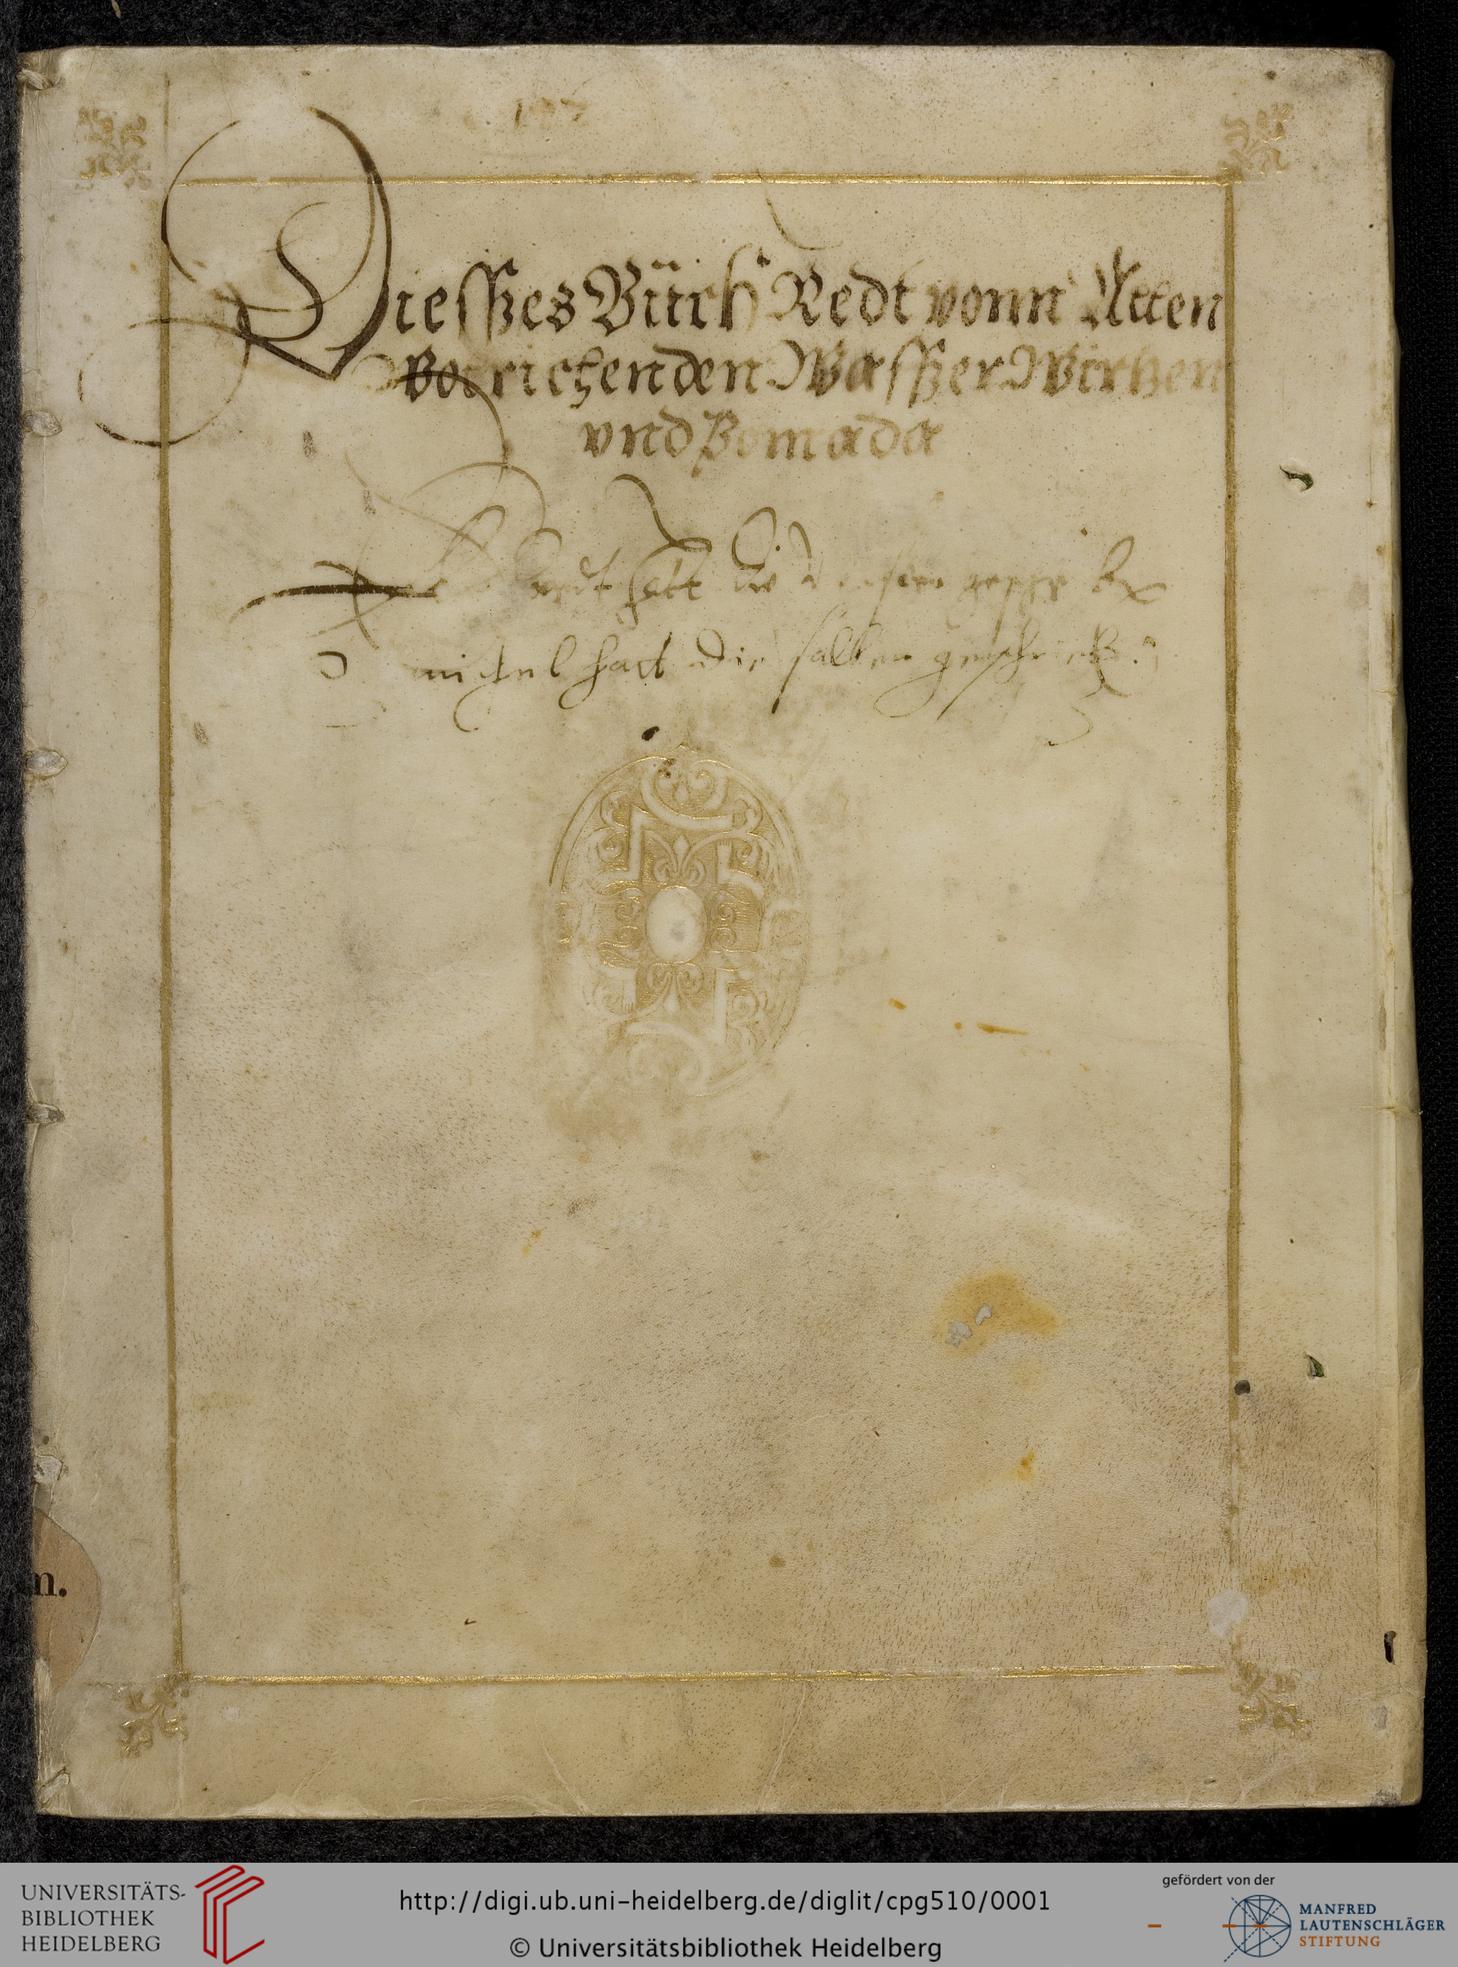 Diesses Büch Redt vonn Allen
Wolrichenden Wasser Wirtzen
vnd Bomada
hatt die
michel hatt die salben geschrieb
n.
UNIVERSITÄTS-
BIBLIOTHEK
HEIDELBERG
http://digi.ub.uni-heidelberg.de/diglit/cpg510/0001
© Universitätsbibliothek Heidelberg
gefördert von der
MANFRED
LAUTENSCHLÄGER
STIFTUNG